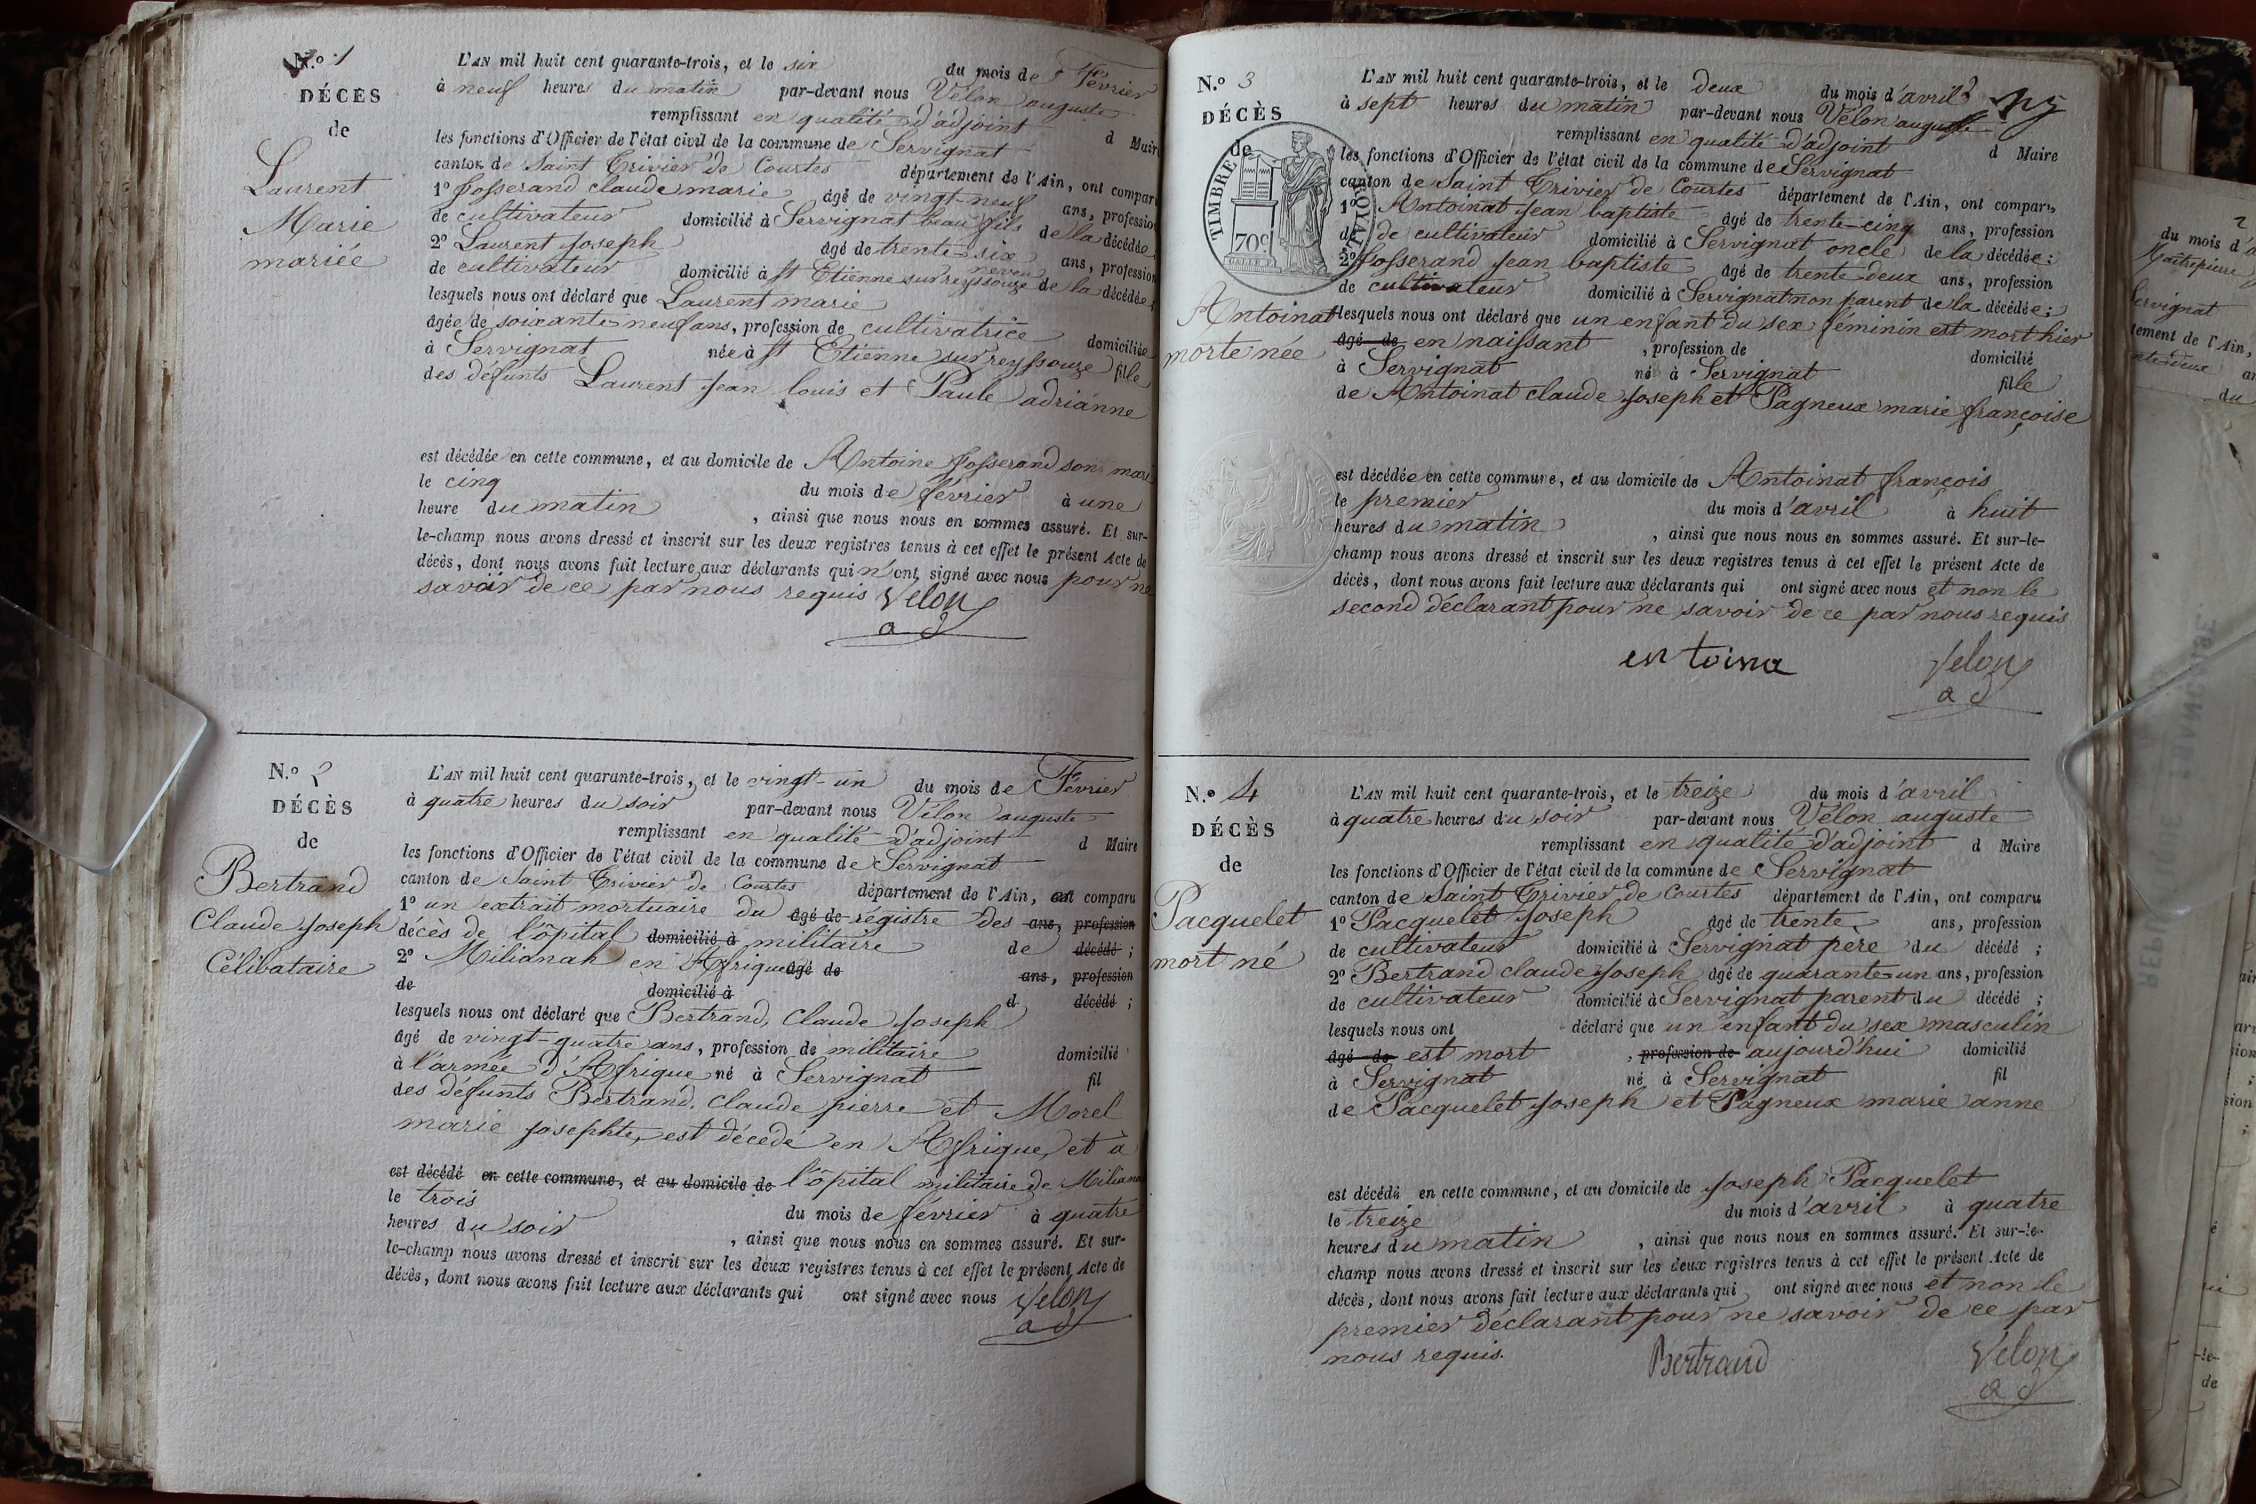 N.º 1
DÉCÈS
de
Laurent
Marie
mariée
L'AN mil huit cent quarante-trois, et le six du mois de Février
à neuf heures du matin par-devant nous Vélon auguste
remplissant en qualité d'adjoint d Maire
les fonctions d'Officier de l'état civil de la commune de Servignat
canton de Saint Trivier de Courtes département de l'Ain, ont comparu
1º Josserand claude marie âgé de vingt-neuf ans, profession
de cultivateur domicilié à Servignat beau fils de la décédée
2º Laurent Joseph âgé de trente-six ans, profession
de cultivateur domicilié à St Etienne sur reyssouze neveu de la décédée
lesquels nous ont déclaré que Laurent marie
âgée de soixante neuf ans, profession de cultivatrice domiciliée
à Servignat née à St Etienne sur reyssouze fille
des défunts Laurent Jean louis et Paule adrianne
est décédée en cette commune, et au domicile de Antoine Josserand son mari
le cinq du mois de février à une
heure du matin , ainsi que nous nous en sommes assuré. Et sur-
le-champ nous avons dressé et inscrit sur les deux registres tenus à cet effet le présent Acte de
décès, dont nous avons fait lecture aux déclarants qui n'ont signé avec nous pour ne
savoir de ce par nous requis Velon
a d
N.º 2
DÉCÈS
de
Bertrand
Claude Joseph
Célibataire
L'AN mil huit cent quarante-trois, et le vingt-un du mois de Février
à quatre heures du soir par-devant nous Vélon auguste
remplissant en qualité d'adjoint d Maire
les fonctions d'Officier de l'état civil de la commune de Servignat
canton de Saint Trivier de Courtes département de l'Ain, ont comparu
1º un extrait mortuaire du âgé de régistre des ans, profession
décès de l'ôpital domicilié à militaire de décédé ;
2º Milianah en Afrique âgé de ans, profession
de domicilié à d décédé ;
lesquels nous ont déclaré que Bertrand, Claude Joseph
âgé de vingt-quatre ans, profession de militaire domicilié
à l'armée d'Afrique né à Servignat fil
des défunts Bertrand, Claude pierre et Morel
marie Josephte, est décedé en Afrique, et à
est décédé en cette commune, et au domicile de l'ôpital militaire de Miliana
le trois du mois de février à quatre
heures du soir , ainsi que nous nous en sommes assuré. Et sur-
le-champ nous avons dressé et inscrit sur les deux registres tenus à cet effet le présent Acte de
décès, dont nous avons fait lecture aux déclarants qui ont signé avec nous Velon
a d
N.º 3
DÉCÈS
de
TIMBRE ROYAL
70c
Antoinat
morte née
L'AN mil huit cent quarante-trois, et le deux du mois d'avril
à sept heures du matin par-devant nous Vélon auguste
remplissant en qualité d'adjoint d Maire
les fonctions d'Officier de l'état civil de la commune de Servignat
canton de Saint Trivier de Courtes département de l'Ain, ont comparu
1º Antoinat Jean baptiste âgé de trente-cinq ans, profession
de de cultivateur domicilié à Servignat oncle de la décédée ;
2º Josserand Jean baptiste âgé de trente-deux ans, profession
de cultivateur domicilié à Servignat non parent de la décédée ;
lesquels nous ont déclaré que un enfant du sex féminin est mort hier
âgé de en naissant , profession de domicilié
à Servignat né à Servignat fille
de Antoinat claude Joseph et Pagneux marie françoise
est décédée en cette commune, et au domicile de Antoinat françois
le premier du mois d'avril à huit
heures du matin , ainsi que nous nous en sommes assuré. Et sur-le-
champ nous avons dressé et inscrit sur les deux registres tenus à cet effet le présent Acte de
décès, dont nous avons fait lecture aux déclarants qui ont signé avec nous et non le
second déclarant pour ne savoir de ce par nous requis
entoina Velon
a d
N.º 4
DÉCÈS
de
Pacquelet
mort né
L'AN mil huit cent quarante-trois, et le treize du mois d'avril
à quatre heures du soir par-devant nous Vélon auguste
remplissant en qualité d'adjoint d Maire
les fonctions d'Officier de l'état civil de la commune de Servignat
canton de Saint Trivier de Courtes département de l'Ain, ont comparu
1º Pacquelet Joseph âgé de trente ans, profession
de cultivateur domicilié à Servignat père du décédé ;
2º Bertrand claude Joseph âgé de quarante-un ans, profession
de cultivateur domicilié à Servignat parent du décédé ;
lesquels nous ont déclaré que un enfant du sex masculin
âgé de est mort , profession de aujourd'hui domicilié
à Servignat né à Servignat fil
de Pacquelet Joseph et Pagneux marie anne
est décédé en cette commune, et au domicile de Joseph Pacquelet
le treize du mois d'avril à quatre
heures du matin , ainsi que nous nous en sommes assuré. Et sur-le-
champ nous avons dressé et inscrit sur les deux registres tenus à cet effet le présent Acte de
décès, dont nous avons fait lecture aux déclarants qui ont signé avec nous et non le
premier déclarant pour ne savoir de ce par
nous requis. Bertrand Vélon
a d
du mois d'a
Servignat
tement de l'Ain,
du